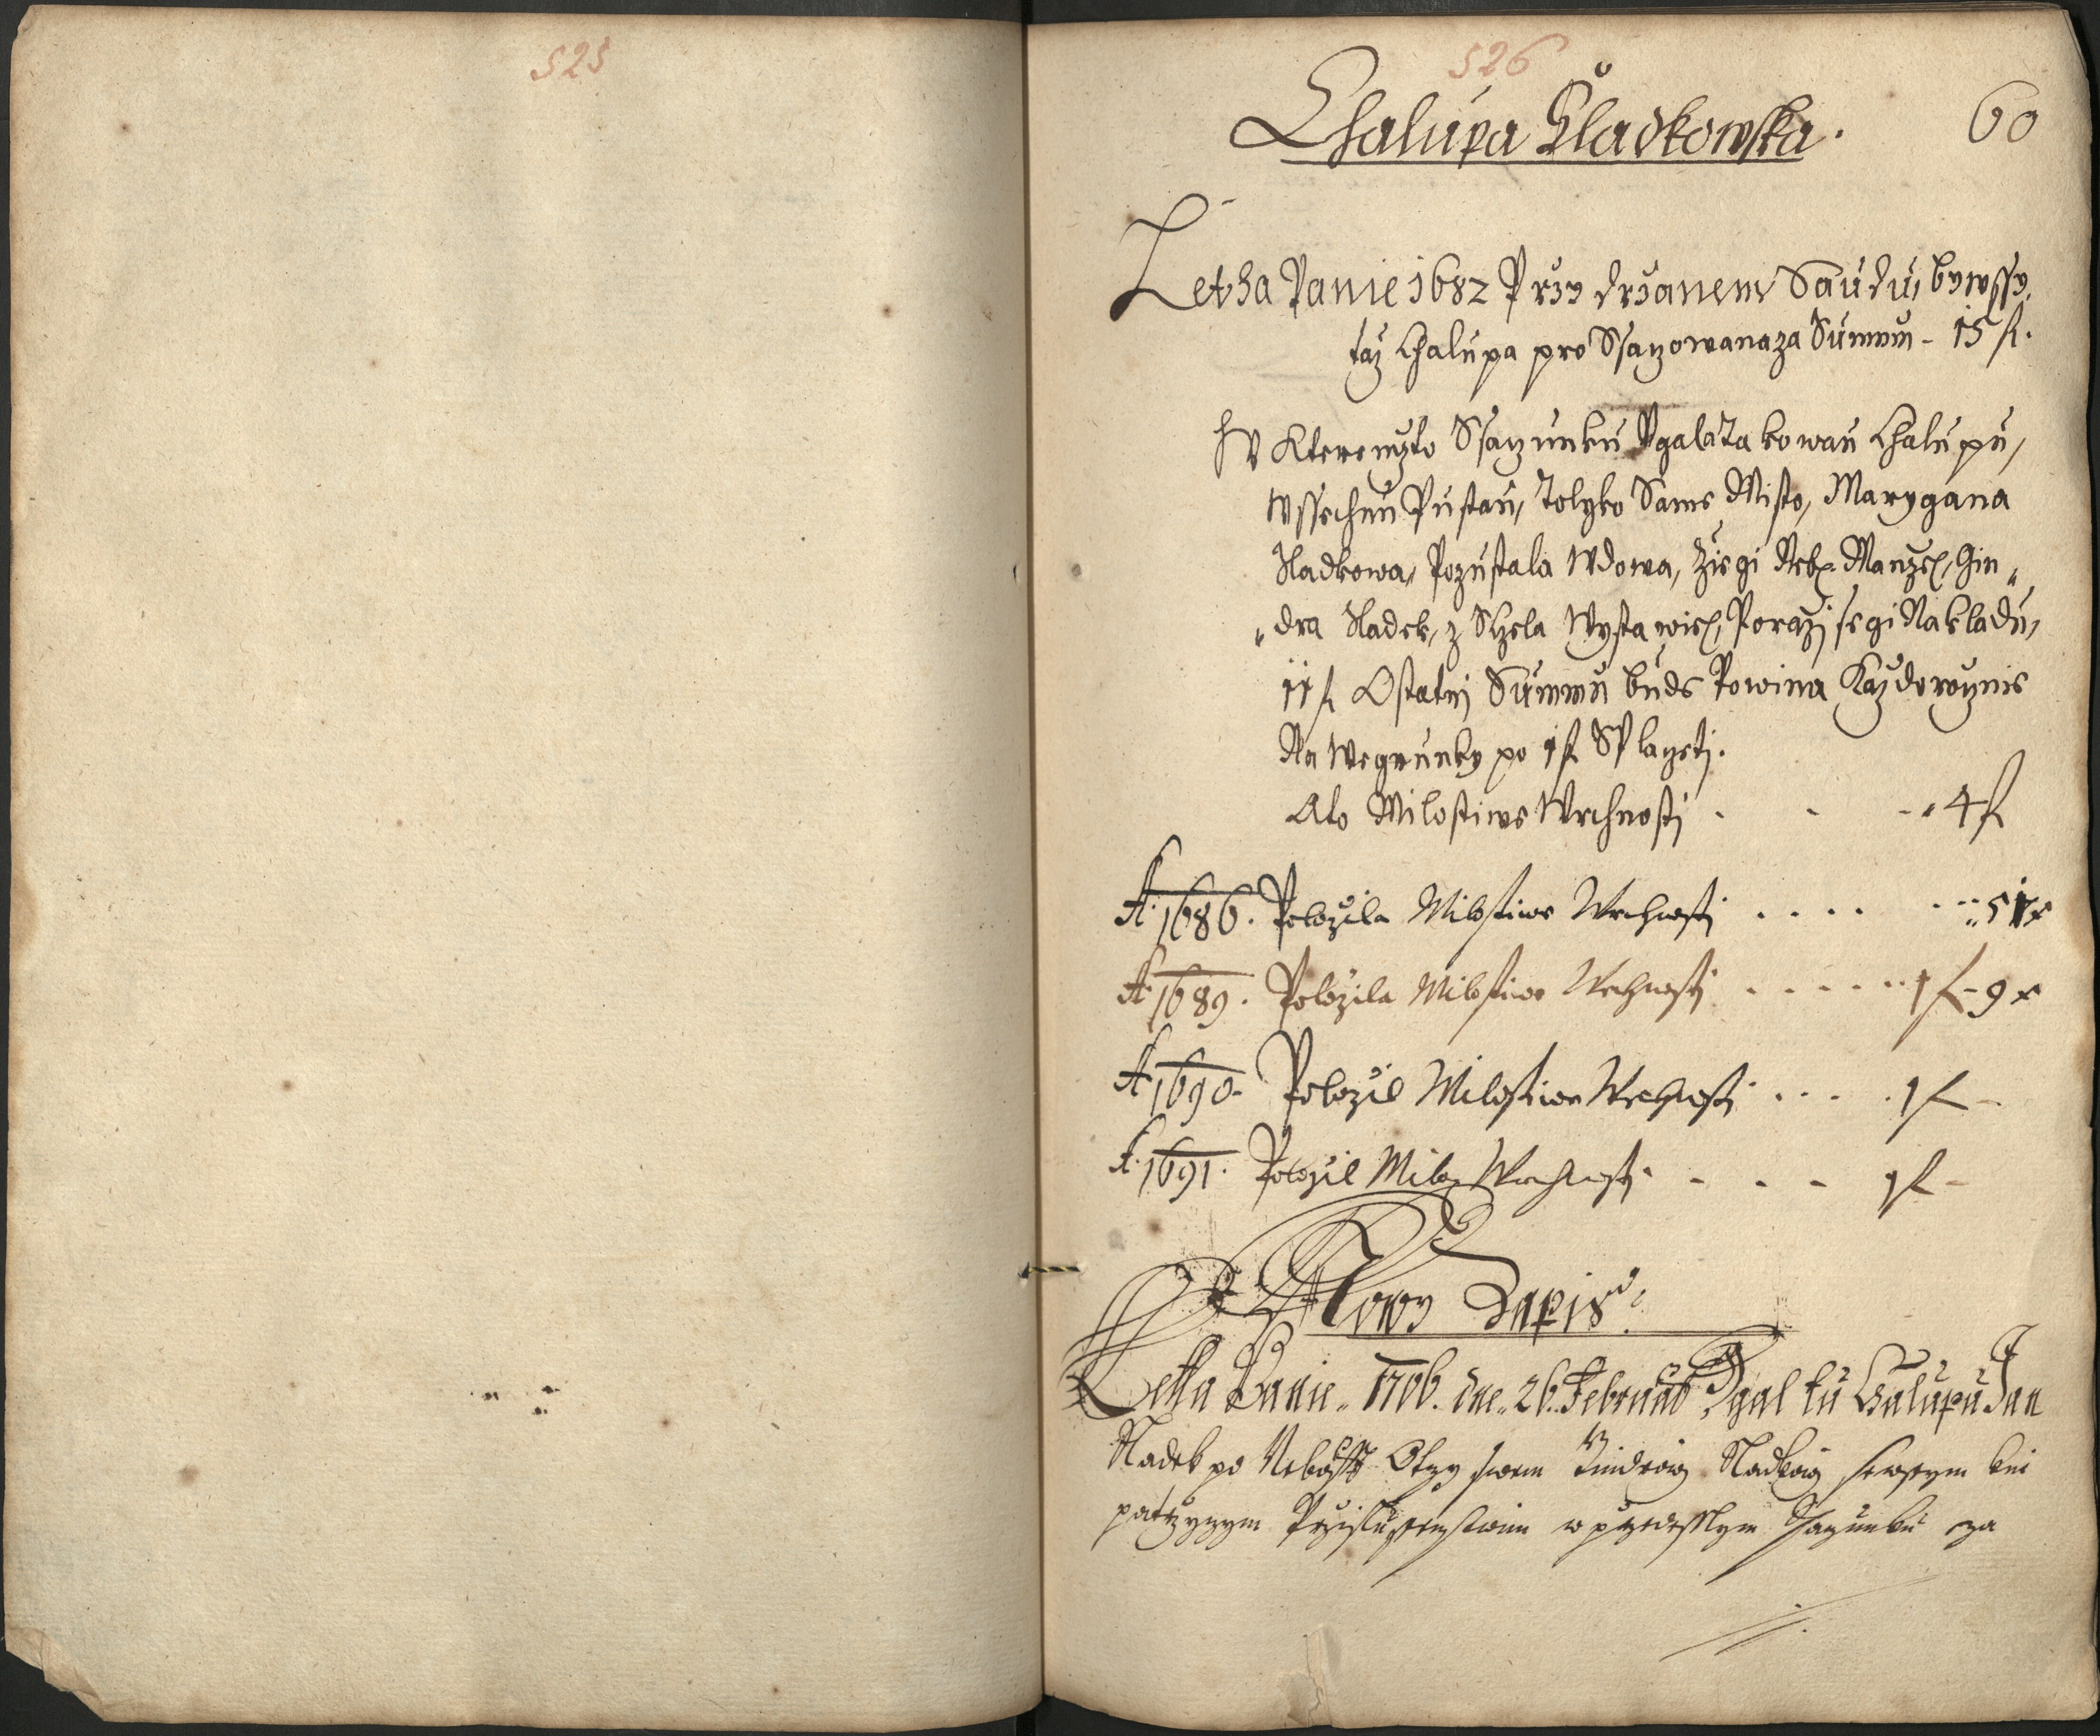 525
526
60
Chalupa Sladkowska.
Letha Panie 1682 Przy drzanem Saudu, bywssy
taz Chalupa pro Ssazowana za Summu - 15 fl.
W kteremzto Ssazunku Vgala Takowau Chalupu,
Wssechnu Pustau, Tolyko Same Misto, Marygana
Sladkowa, Pozustala Wdowa, Ziegi Neb. Manzel, Gin„
„dra Sladek, z Czela Wystawiel, Porazi se gi Nakladu,
11 fl Ostatnj Summu bude Powina Kazdorocznie
Na Wegrunky po 1 fl Splaczeti.
Ato Milostiwe Wrchnosti . . - 4 fl
A. 1686. Polozila Milostiwe Wrchnosti . . . . . . . 51 x
A. 1689. Polozila Milostiwe Wrchnosti . . . . . . 1 f - 9 x
A. 1690. Polozil Milostiwe Wrchnosti . . . . 1 f -
A. 1691. Polozil Milo. Wrchnosti - . - - 1 f -
Nowy Zapis.
Letha Panie„ 1706. dne„ 26. Februari Vgal tu Chalupu Jan
Sladek po Nebosst. Otczy swem Jindrow Sladkow sewssym knj
patrzyczym Przislussenstwim w przedesslym Ssazunku za